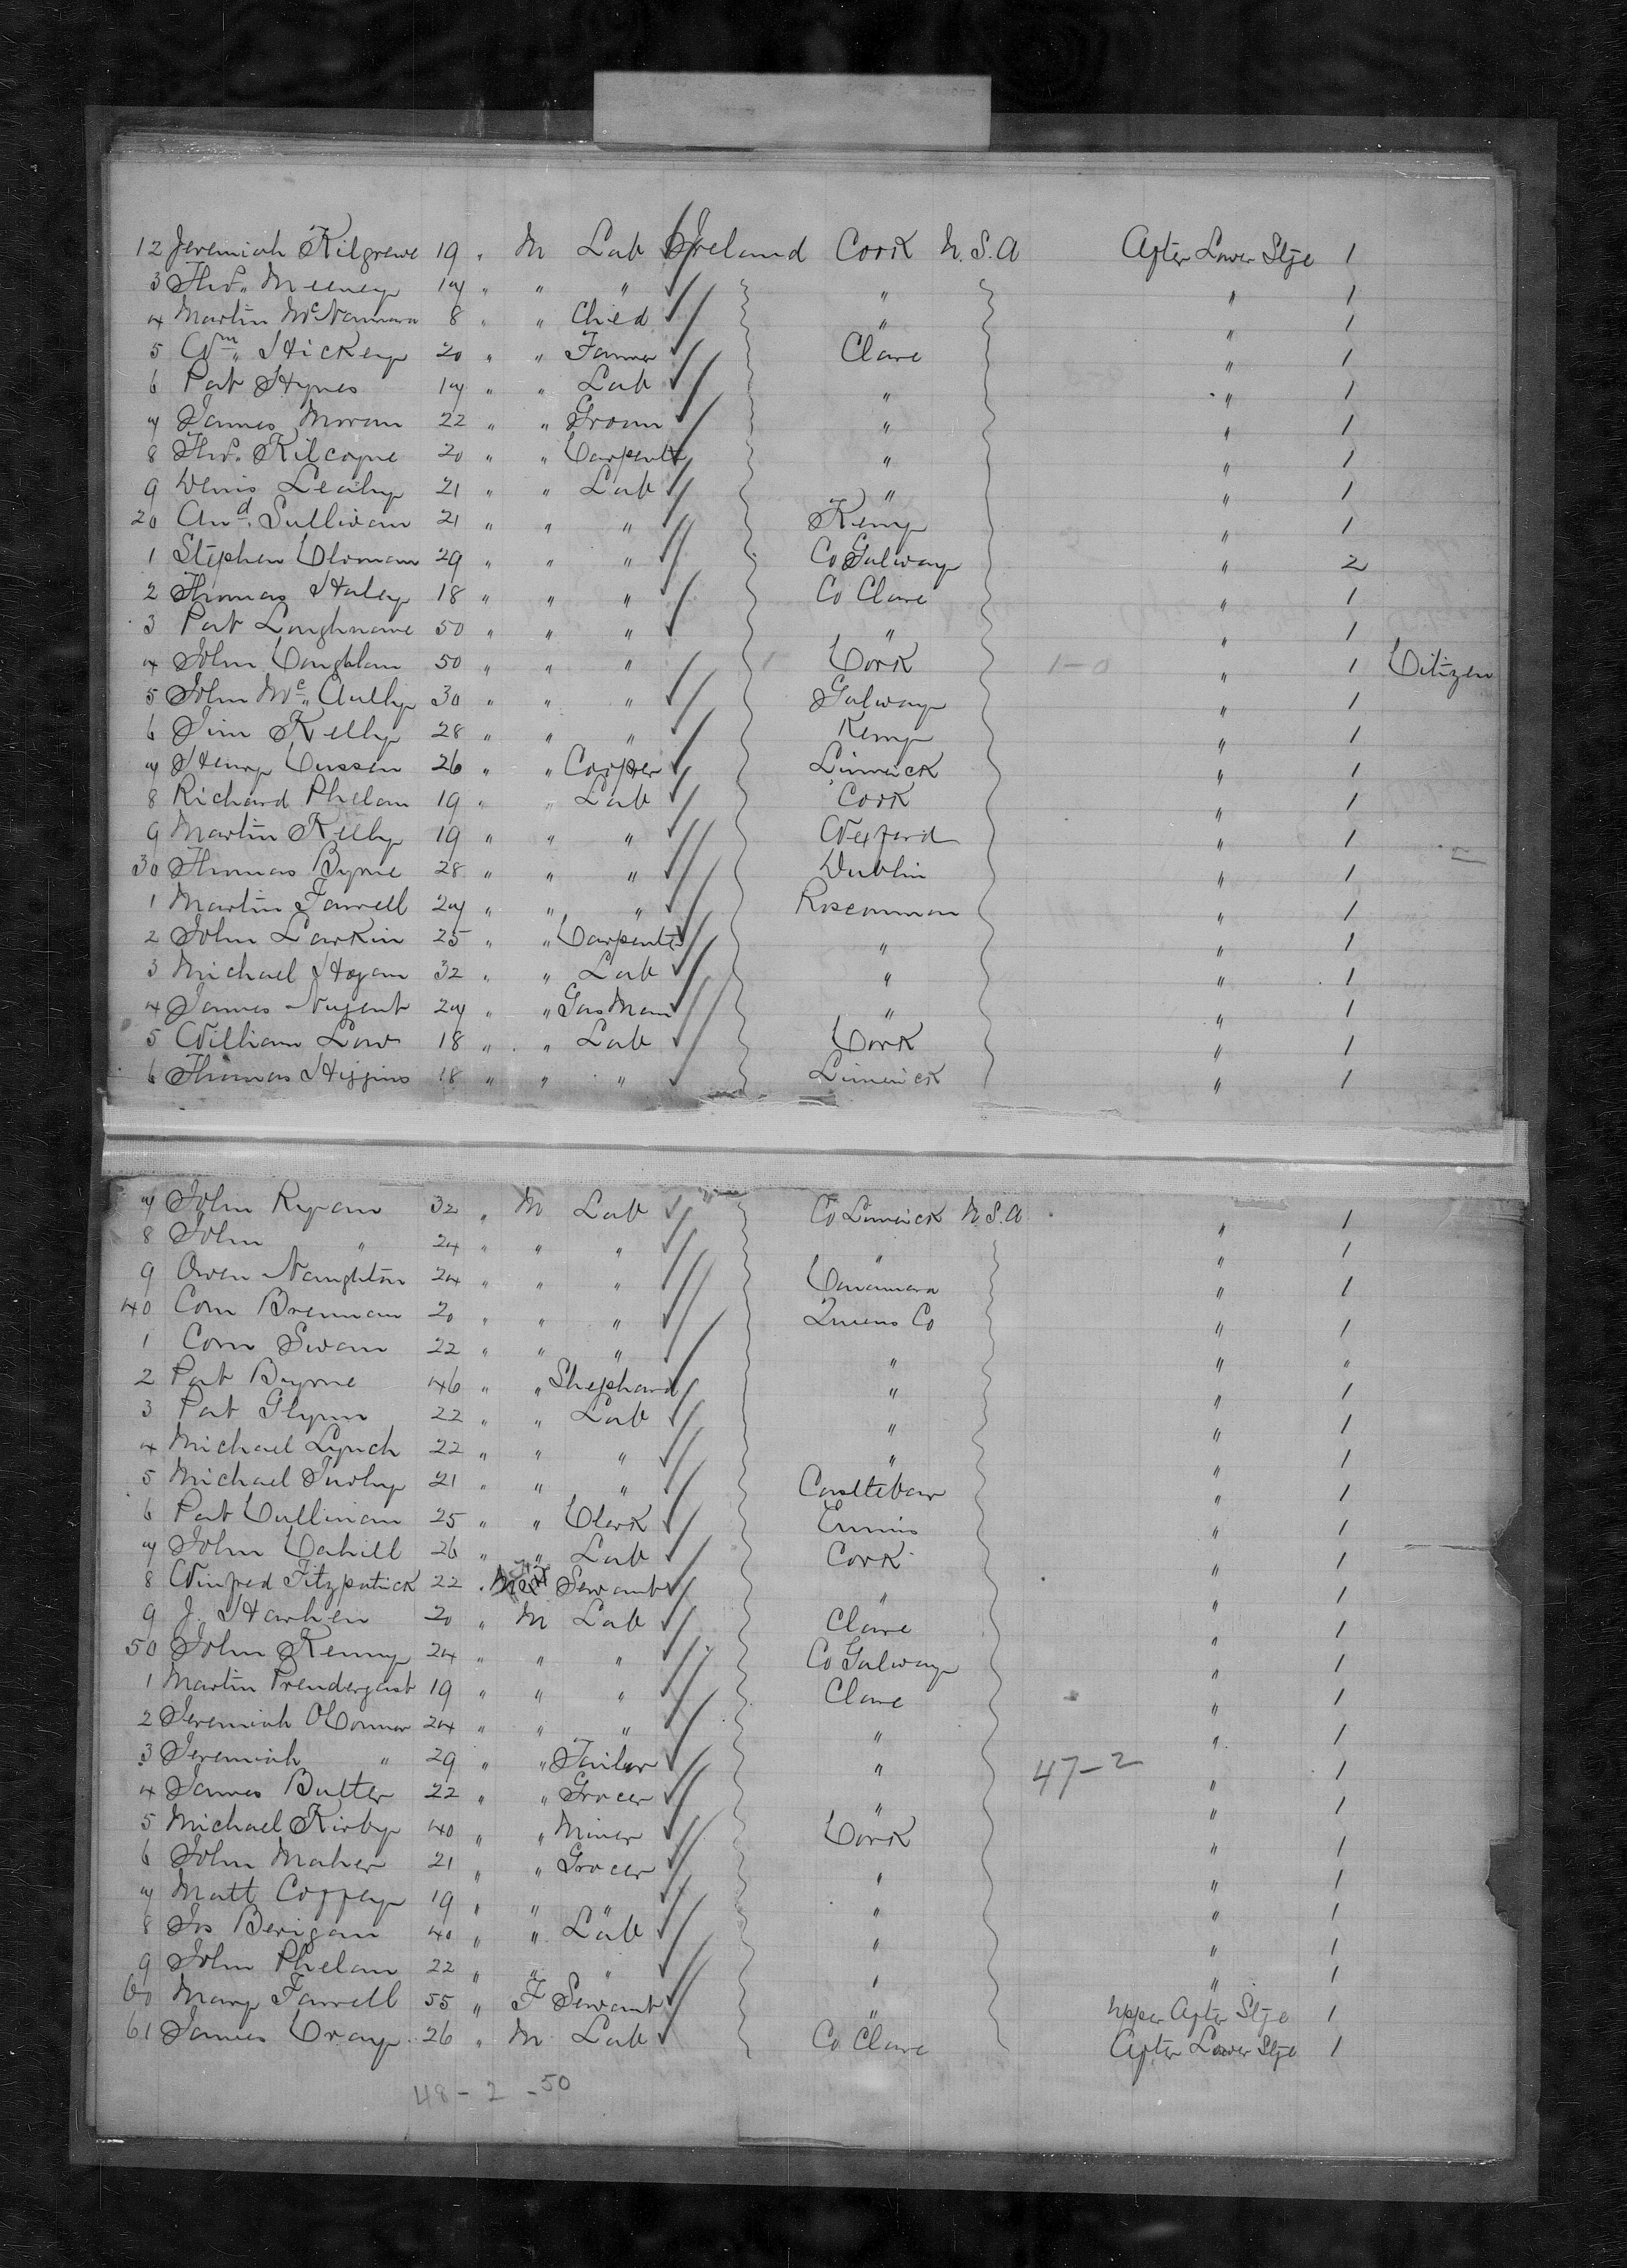 12 Jeremiah Kilgrewe 19 " M Lab Ireland Cork U.S.A After Lower Stge 1
3 Thos. Meeney 17 " " " " " 1
4 Martin McNamara 8 " " Chied " " 1
5 Wm. Hickey 20 " " Farmer Clare " 1
6 Pat Hynes 17 " " Lab " " 1
7 James Moran 22 " " Groom " " 1
8 Thos. Kilcoyne 20 " " Carpenter " " 1
9 Denis Leahy 21 " " Lab " " 1
20 And. Sullivan 21 " " " Kerry " 1
1 Stephen 29 " " " Co Galway " 2
2 Thomas Haley 18 " " " Co Clare " 1
3 Pat Loughnane 50 " " " " " 1
4 John Coughlan 50 " " " Cork 1-0 " 1 Citizen
5 John Mc. Aully 30 " " " Galway " 1
6 Jim Kelly 28 " " " Kerry " 1
7 Henry Cussen 26 " " Cooper Limerick " 1
8 Richard Phelan 19 " " Lab Cork " 1
9 Martin Kelly 19 " " " Wexford " 1
30 Thomas Byrne 28 " " " Dublin " 1
1 Martin Farrell 27 " " " Roscommon " 1
2 John Larkin 25 " " Carpenter " " 1
3 Michael Hogan 32 " " Lab " " 1
4 James Nugent 27 " " Gas Man " " 1
5 William Law 18 " " Lab Cork " 1
6 Thomas Higgins 18 " " " Limerick " 1
7 John Ryan 32 " M Lab Co Limerick U.S.A " 1
8 John " 24 " " " " " 1
9 Owen Naughton 24 " " " Conamara " 1
40 Corn Brennan 20 " " " Queens Co " 1
1 Corn Swan 22 " " " " " "
2 Pat Byrne 46 " " Shephard " " 1
3 Pat Glynn 22 " " Lab " " 1
4 Michael Lynch 22 " " " " " 1
5 Michael 21 " " " Castlebar " 1
6 Pat Cullinan 25 " " Clerk Ennis " 1
7 John Cahill 26 " " Lab Cork " 1
8 Winfred Fitzpatrick 22 " Servant " " 1
9 J. Harhen 20 " M Lab Clare " 1
50 John Kenny 24 " " " Co Galway " 1
1 Martin Prendergast 19 " " " Clare " 1
2 Jeremiah OConnor 24 " " " " " 1
3 Jeremiah " 29 " " Tailor " 47-2 " 1
4 James Butler 22 " " Grocer " " 1
5 Michael Kirby 40 " " Miner Cork " 1
6 John Maher 21 " " Grocer " " 1
7 Matt Coffey 19 " " " " " 1
8 Jas Berigan 40 " " Lab " " 1
9 John Phelan 22 " " " " " 1
60 Mary Farrell 55 " F Servant " Upper After Stge 1
61 James Cray 26 " M Lab Co Clare After Lower Stge 1
48-2-50